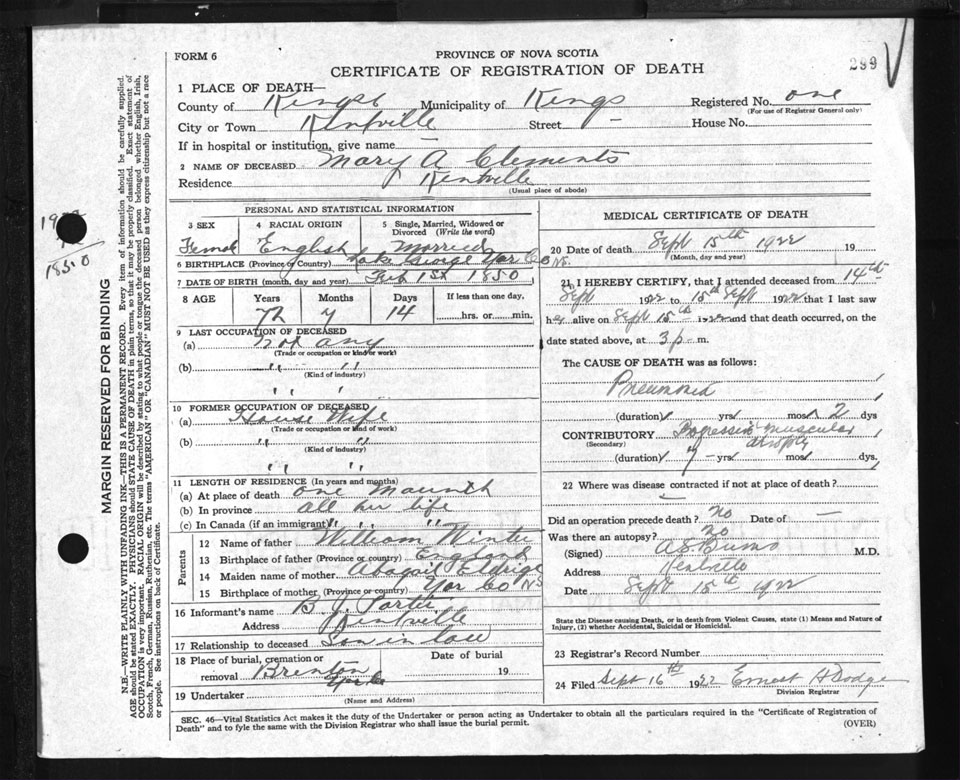 FORM 6
PROVINCE OF NOVA SCOTIA
299
CERTIFICATE OF REGISTRATION OF DEATH
1 PLACE OF DEATH—
County of Kings Municipality of Kings Registered No. one
(For use of Registrar General only)
City or Town Kentville Street — House No.
If in hospital or institution, give name —
2 NAME OF DECEASED Mary A Clements
Residence Kentville
(Usual place of abode)
PERSONAL AND STATISTICAL INFORMATION
3 SEX 4 RACIAL ORIGIN 5 Single, Married, Widowed or Divorced (Write the word)
Female English Married
6 BIRTHPLACE (Province or Country) Lake George Yar Co NS.
7 DATE OF BIRTH (month, day and year) Feb 1st 1850
8 AGE Years Months Days If less than one day,
72 7 14 hrs. or min.
9 LAST OCCUPATION OF DECEASED
(a) not any
(Trade or occupation or kind or work)
(b) " "
(Kind of industry)
" "
10 FORMER OCCUPATION OF DECEASED
(a) House Wife
(Trade or occupation or kind of work)
(b) " "
(Kind of industry)
" "
11 LENGTH OF RESIDENCE (In years and months)
(a) At place of death one mounth
(b) In province all her life
(c) In Canada (if an immigrant) " " "
Parents
12 Name of father William Winter
13 Birthplace of father (Province or country) England
14 Maiden name of mother Abagail Eldrige
15 Birthplace of mother (Province or country) Yar Co NS
16 Informant's name B. J. Porter
Address Kentville
17 Relationship to deceased Son in law
18 Place of burial, cremation or removal Brenton Yar Co
Date of burial 19
19 Undertaker
(Name and Address)
MEDICAL CERTIFICATE OF DEATH
20 Date of death Sept 15th 1922 19
(Month, day and year)
21 I HEREBY CERTIFY, that I attended deceased from 14th
Sept 1922 to 15th Sept 1922 that I last saw
her alive on Sept 15th 1922 and that death occurred, on
date stated above, at 3 p. m.
The CAUSE OF DEATH was as follows:
Pneumonia
(duration) yrs. mos. 2 dys
CONTRIBUTORY Progressive muscular
(Secondary) atrophy
(duration) 7 yrs mos. dys.
22 Where was disease contracted if not at place of death?
Did an operation precede death? no Date of —
Was there an autopsy? no
(Signed) M.D.
Address Kentville
Date Sept 15th 1922
State the Disease causing Death, or in death from Violent Causes, state (1) Means and Nature of Injury, (2) whether Accidental, Suicidal or Homicidal.
23 Registrar's Record Number
24 Filed Sept 16th 1922 Ernest H Dodge
Division Registrar
SEC. 46—Vital Statistics Act makes it the duty of the Undertaker or person acting as Undertaker to obtain all the particulars required in the "Certificate of Registration of Death" and to fyle the same with the Division Registrar who shall issue the burial permit.
(OVER)
MARGIN RESERVED FOR BINDING
N.B.—WRITE PLAINLY WITH UNFADING INK—THIS IS A PERMANENT RECORD. Every item of information should be carefully supplied.
AGE should be stated EXACTLY. PHYSICIANS should STATE CAUSE OF DEATH in plain terms, so that it may be properly classified. Exact statement of
OCCUPATION is very important. RACIAL ORIGIN will be described by stating to what people or tongue the deceased person belonged whether English, Irish,
Scotch, French, German, Russian, Ruthenian, etc. The terms "AMERICAN" OR "CANADIAN" MUST NOT BE USED as they express citizenship but not a race
or people. See instructions on back of Certificate.
1850